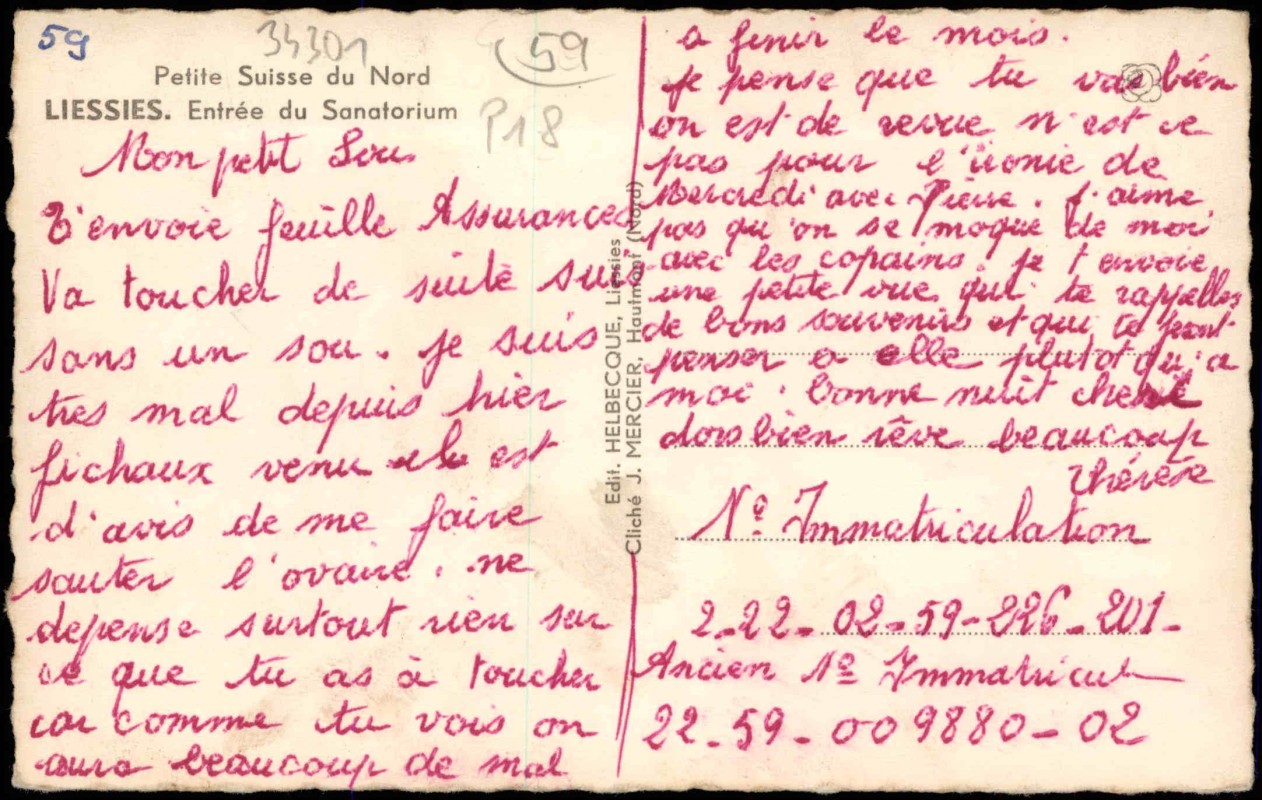 59
34301
59
P18
Petite Suisse du Nord
LIESSIES. Entrée du Sanatorium
Mon petit Lou
T'envoie feuille Assurances
Va toucher de suite suis
sans un sou. je suis
tres mal depuis hier
fichaux venu elle est
d'avis de me faire
sauter l'ovaire. ne
depense surtout rien sur
ce que tu as à toucher
car comme tu vois on
aura beaucoup de mal
Edit. HELBECQUE, Liessies
Cliché J. MERCIER, Hautmont (Nord)
a finir le mois.
je pense que tu vas bien
on est de revue n'est ce
pas pour l'ironie de
Mercredi avec Pierre. J'aime
pas qu'on se moque de moi
avec les copains. je t envoie
une petite vue qui te rappelles
de bons souvenirs et qui te front
penser a elle plutot qu'a
moi. bonne nuit cheri
dors bien rêve beaucoup
Thérèse
Nº Immatriculation
2-22-02-59-226-201-
Ancien Nº Immatricul
22-59-009880-02